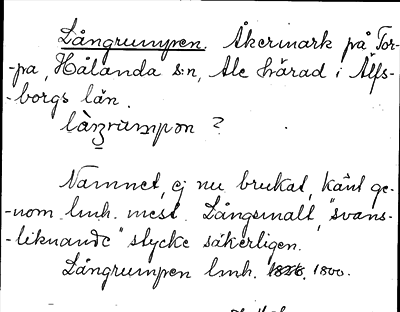 Långrumpen. Åkermark på Tor-
-pa, Hålanda s:n, Ale härad i Älfs-
-borgs län.
làŋrumpon ?
Namnet, ej nu brukat, känt ge-
-nom lmh. mest. Långsmalt, "svans-
-liknande" stycke säkerligen.
Långrumpen lmh. 1826, 1800.